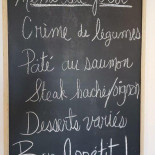 Menu du jour
Crème de légumes
Pâté au saumon
Steak haché/oignons
Desserts variés
Bon Appétit !